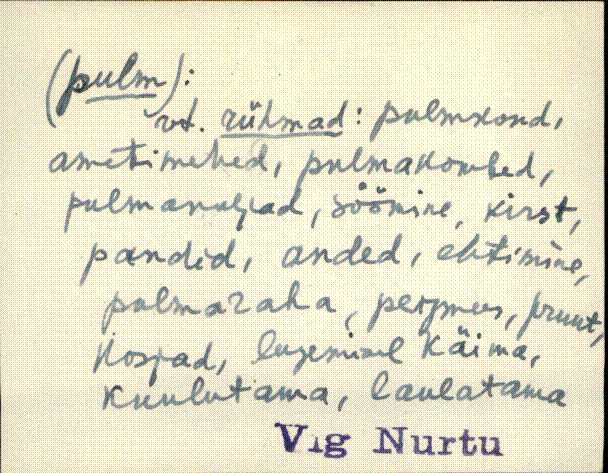 (pulm):
vt. rühmad: pulmkond,
ametimehed, pulmakombed,
pulmanaljad, söömine, kirst,
pandid, anded, ehtimine,
pulmaraha, peigmees, pruut,
kosjad, lugemisel käima,
kuulutama, laulatama
Vig Nurtu